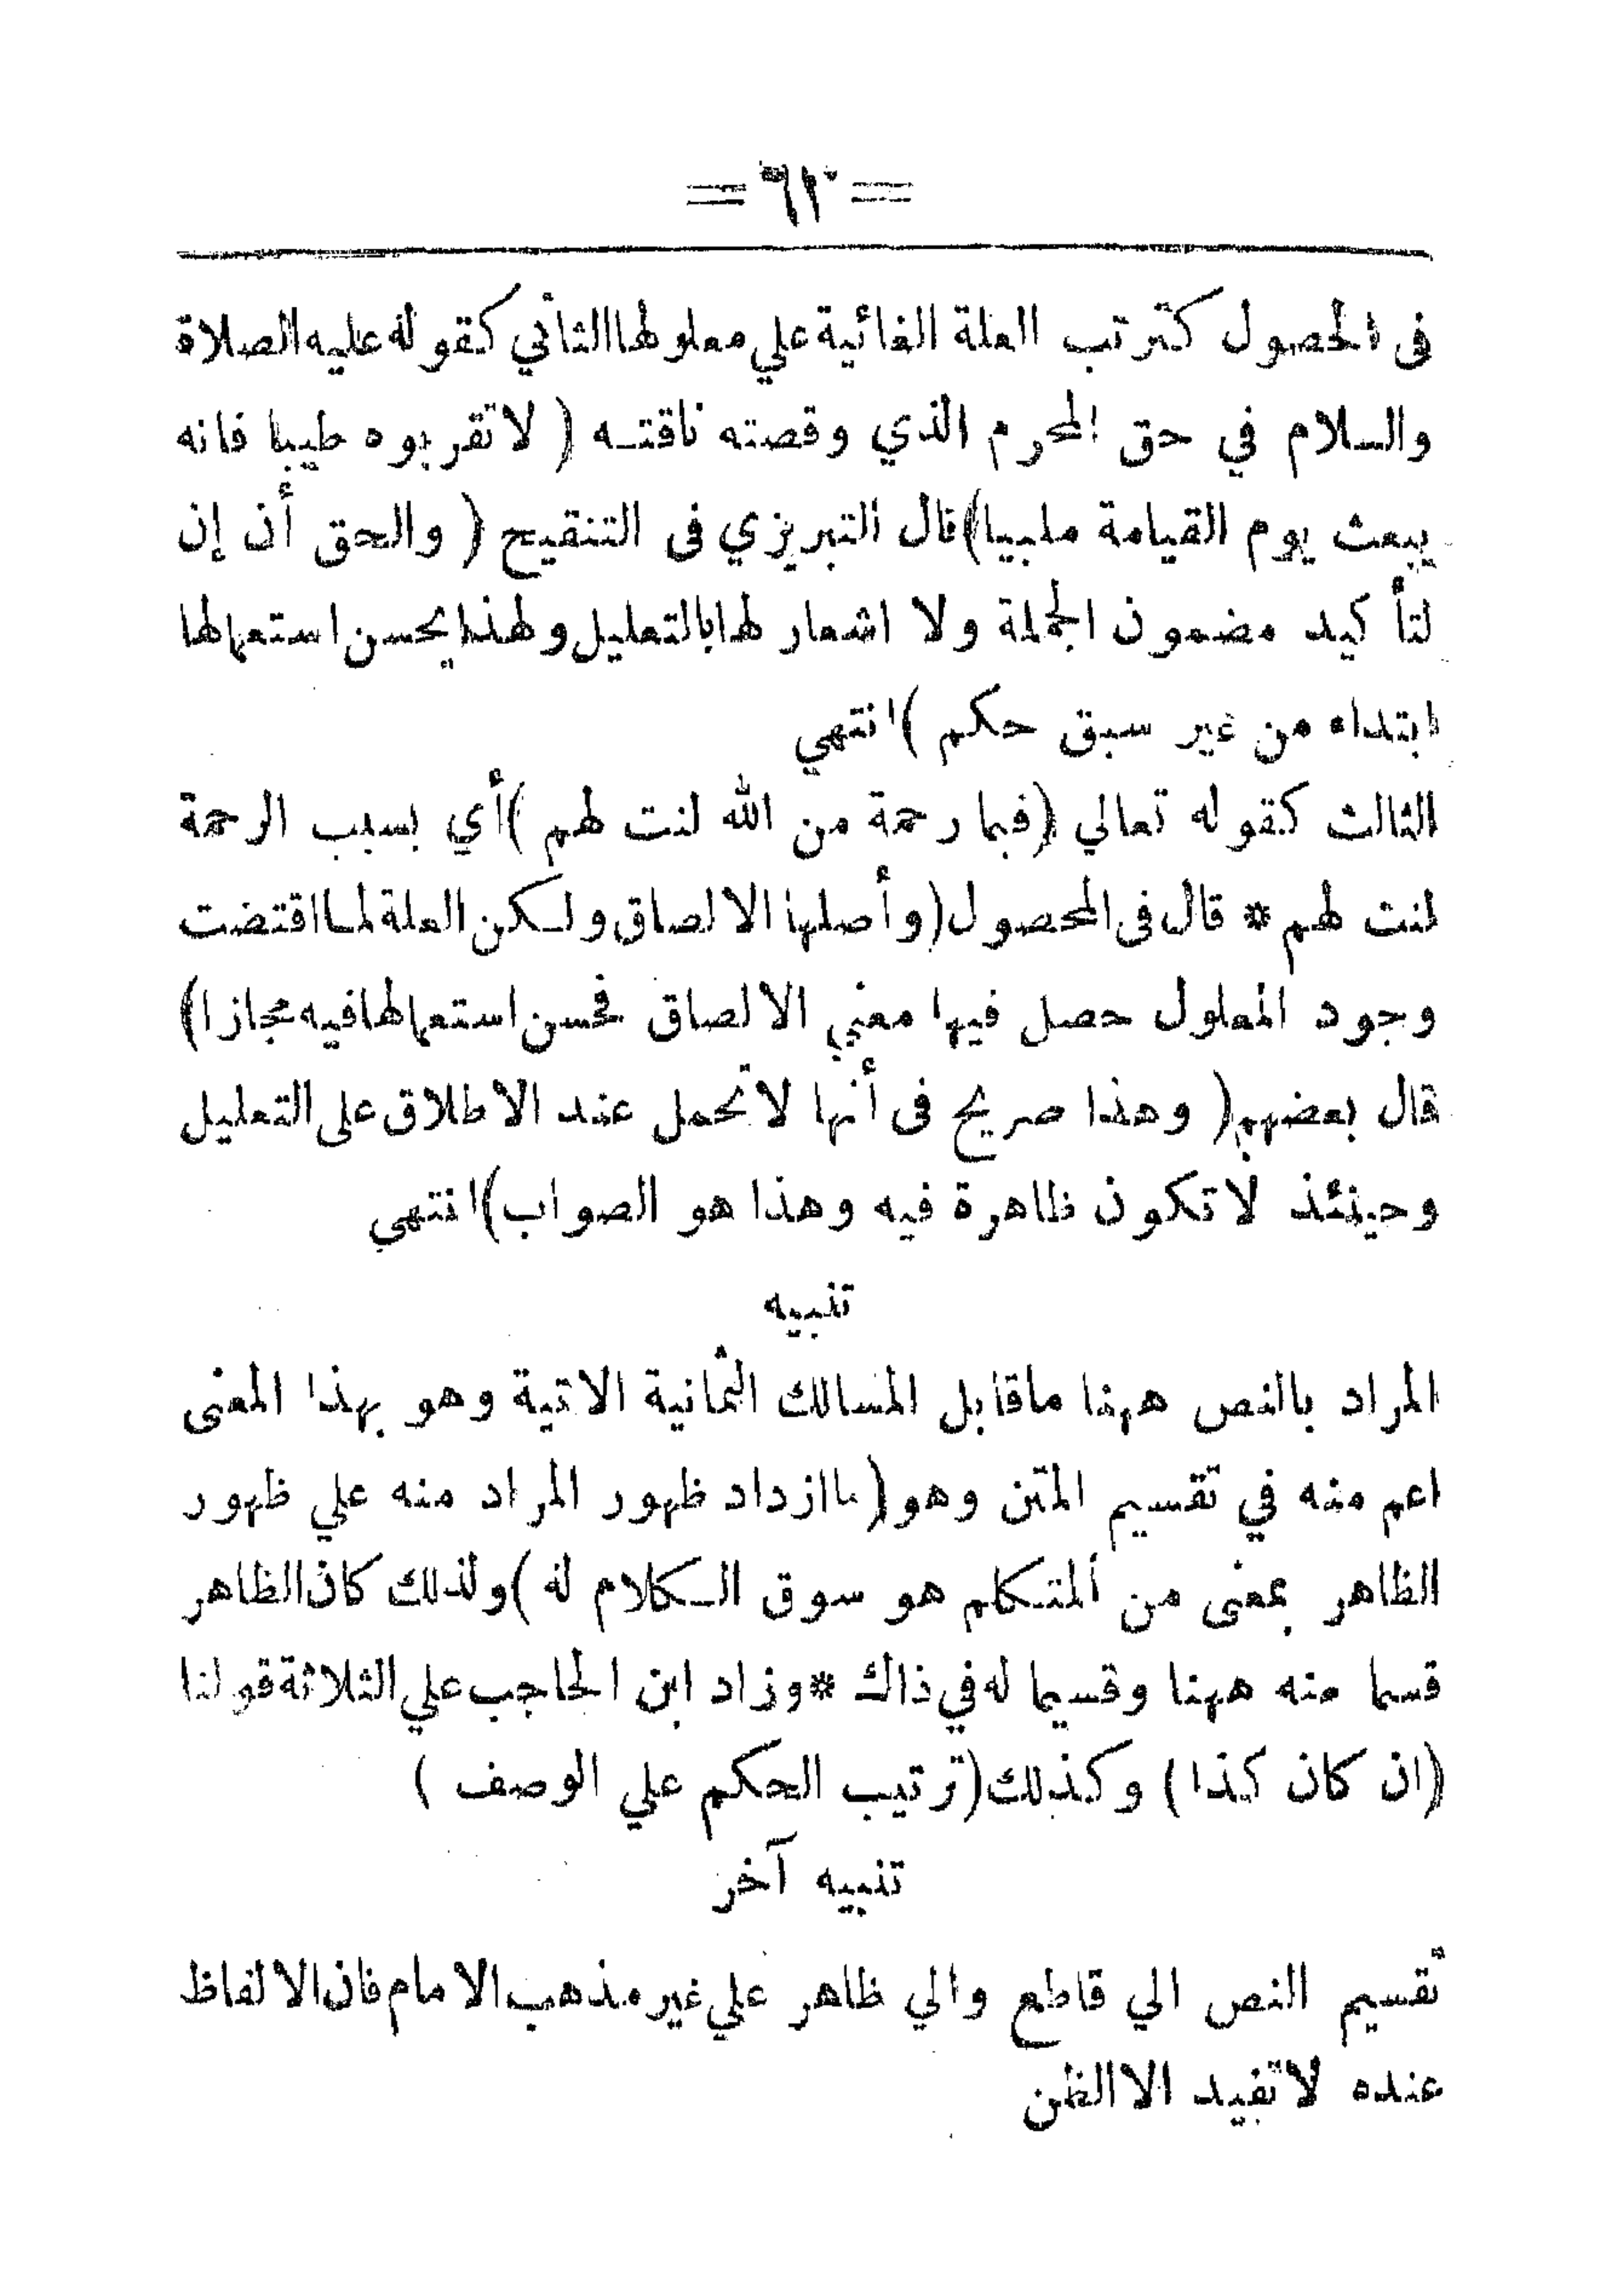 = ٦٢ =
فى الحصول كترتب العلة الغائية علي معلولها الثاني كقوله عليه الصلاة
والسلام في حق المحرم الذي وقصته ناقته ( لا تقربوه طيبا فانه
يبعث يوم القيامة ملبيا) قال التبريزي فى التنقيح ( والحق أن إن
لتأكيد مضمون الجملة ولا اشعار لها بالتعليل ولهذا يحسن استعمالها
ابتداء من غير سبق حكم ) انتهي
الثالث كقوله تعالي (فبما رحمة من الله لنت لهم ) أي بسبب الرحمة
لنت لهم * قال فى المحصول (وأصلها الالصاق ولكن العلة لما اقتضت
وجود المعلول حصل فيها معني الالصاق فحسن استعمالها فيه مجازا)
قال بعضهم ( وهذا صريح فى أنها لا تحمل عند الاطلاق على التعليل
وحينئذ لا تكون ظاهرة فيه وهذا هو الصواب) انتهي
تنبيه
المراد بالنص ههنا ما قابل المسالك الثمانية الاتية وهو بهذا المعنى
اعم منه في تقسيم المتن وهو ( ما ازداد ظهور المراد منه علي ظهور
الظاهر بمعنى من المتكلم هو سوق الكلام له ) ولذلك كان الظاهر
قسما منه ههنا وقسيما له في ذاك * وزاد ابن الحاجب علي الثلاثة قولنا
(ان كان كذا ) وكذلك (ترتيب الحكم علي الوصف )
تنبيه آخر
تقسيم النص الي قاطع والي ظاهر علي غير مذهب الامام فان الالفاظ
عنده لا تفيد الا الظن